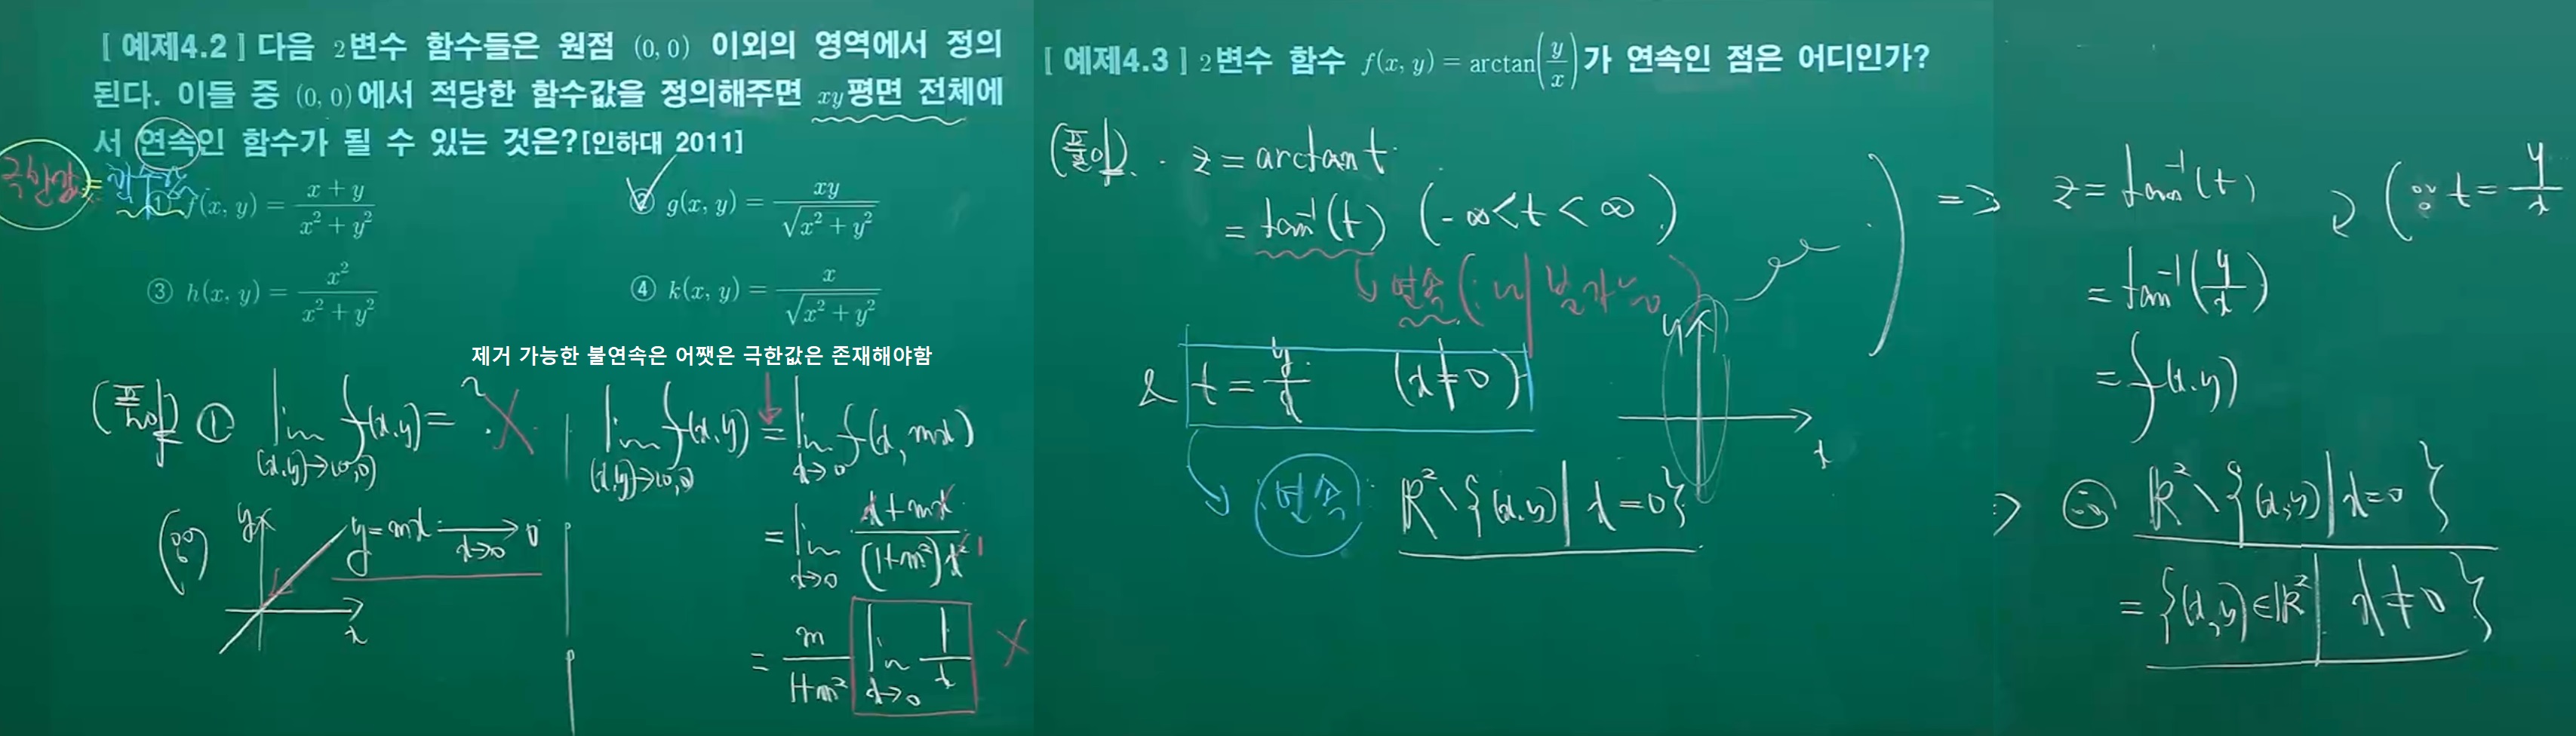 [ 예제4.2 ] 다음 2변수 함수들은 원점 (0, 0) 이외의 영역에서 정의
된다. 이들 중 (0, 0)에서 적당한 함수값을 정의해주면 xy평면 전체에
서 연속인 함수가 될 수 있는 것은?[인하대 2011]
극한값 = 함수값
① f(x, y) = (x + y)/(x² + y²)
② g(x, y) = xy/√(x² + y²)
③ h(x, y) = x²/(x² + y²)
④ k(x, y) = x/√(x² + y²)
제거 가능한 불연속은 어쨋은 극한값은 존재해야함
(풀이) ① lim (x,y)→(0,0) f(x,y) = ? X
(∵ y x y = mx → 0 x→0 )
lim (x,y)→(0,0) f(x,y) = lim x→0 f(x, mx)
= lim x→0 (x + mx)/((1+m²)x²)
= m/(1+m²) lim x→0 1/x X
[ 예제4.3 ] 2변수 함수 f(x, y) = arctan(y/x)가 연속인 점은 어디인가?
(풀이). · z = arctan t
= tan⁻¹(t) (-∞ < t < ∞)
연속
& t = y/x (x ≠ 0)
y x
연속 ℝ² \ {(x,y) | x = 0}
=> z = tan⁻¹(t) (∵ t = y/x
= tan⁻¹(y/x)
= f(x,y)
⇒ ∴ ℝ² \ {(x,y) | x = 0}
= {(x,y) ∈ ℝ² | x ≠ 0}